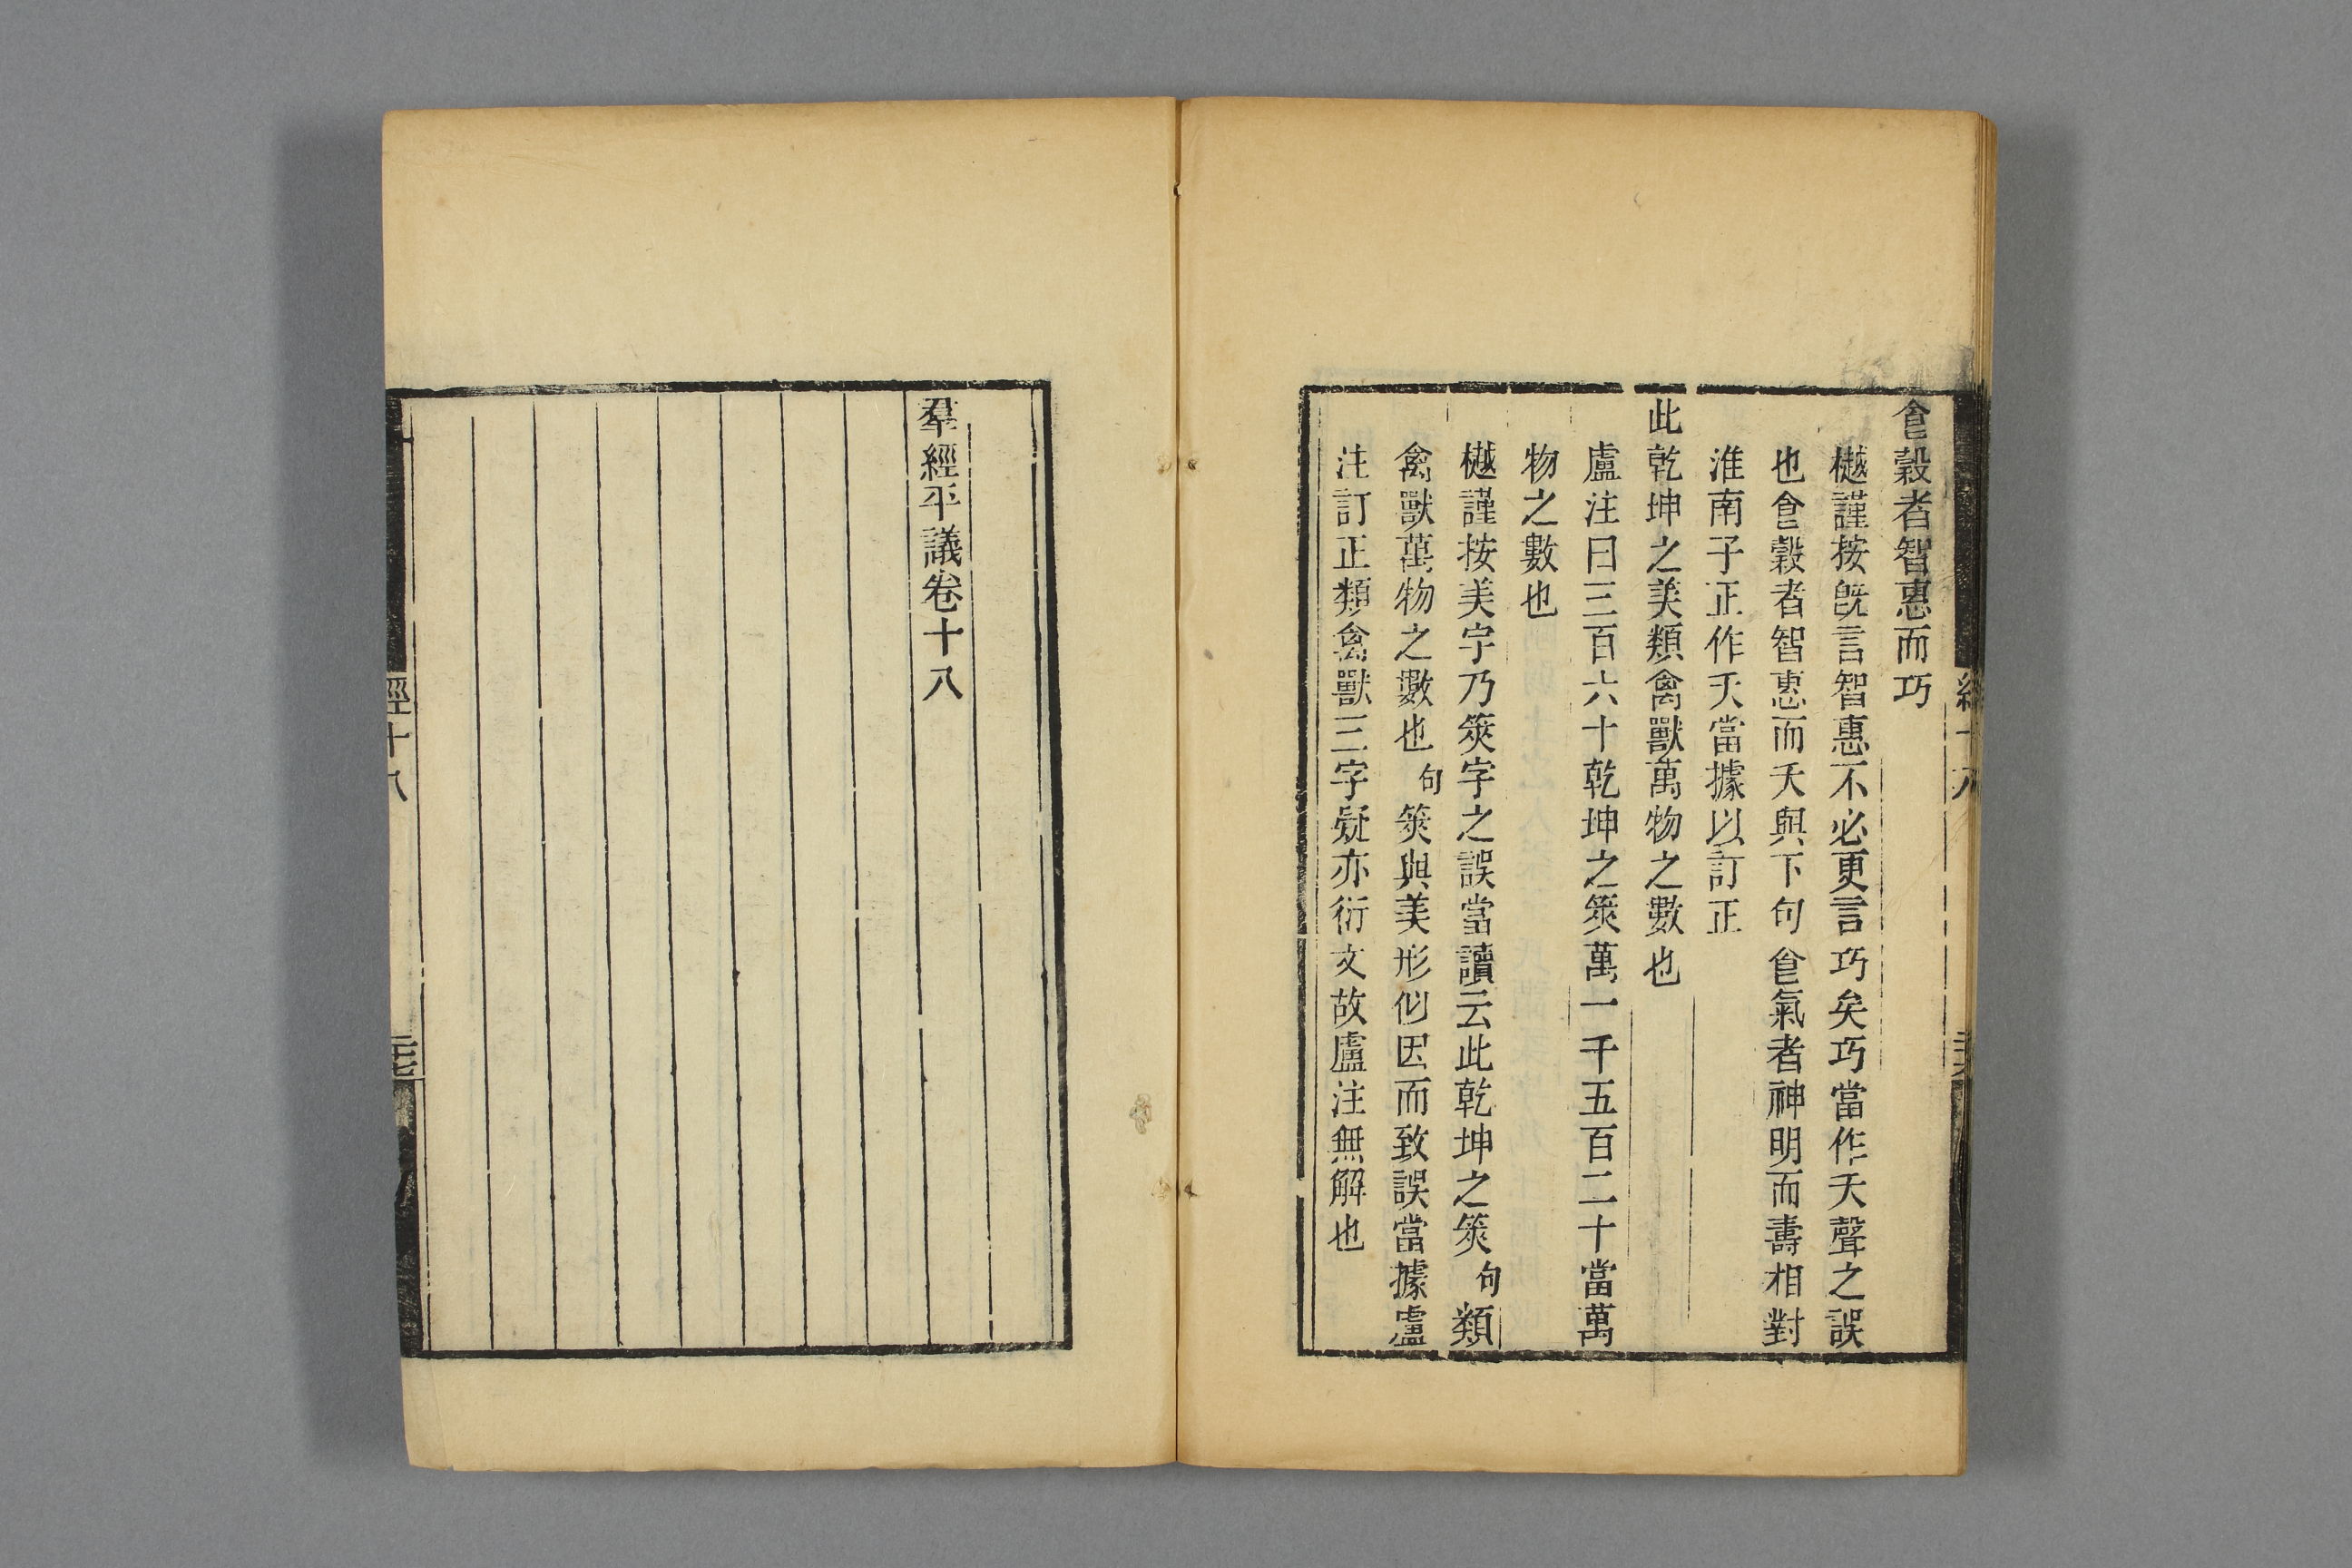 食穀者智惠而巧
樾謹按旣言智惠不必更言巧矣巧當作夭聲之誤
也食穀者智惠而夭與下句食氣者神明而壽相對
淮南子正作夭當據以訂正
此乾坤之美類禽獸萬物之數也
盧注曰三百六十乾坤之筴萬一千五百二十當萬
物之數也
樾謹按美字乃筴字之誤當讀云此乾坤之筴句類
禽獸萬物之數也句筴與美形似因而致誤當據盧
注訂正類禽獸三字疑亦衍文故盧注無解也
羣經平議卷十八
經十八